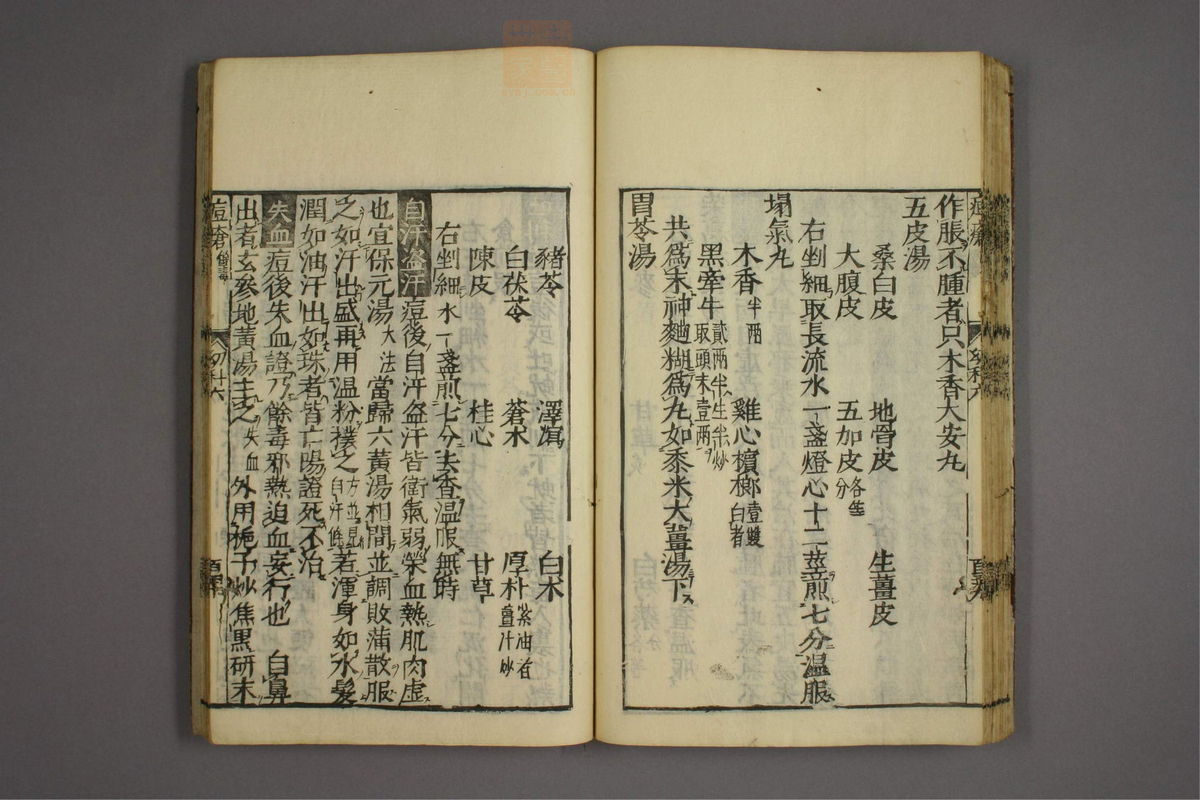 作脹不腫者只木香大安丸
五皮湯
桑白皮 地骨皮 生薑皮
大腹皮 五加皮各等分
右剉細取長流水一盞燈心十二莖煎七分溫服
塌氣丸
木香半兩 雞心檳榔壹雙白者
黑牽牛貳兩半生半炒取頭末壹兩
共爲末神麯糊爲丸如黍米大薑湯下
胃苓湯
豬苓 澤瀉 白朮
白茯苓 蒼朮 厚朴紫油者薑汁炒
陳皮 桂心 甘草
右剉細水一盞煎七分去查溫服無時
自汗盜汗 痘後自汗盜汗皆衛氣弱榮血熱肌肉虛
也宜保元湯大法當歸六黃湯相間並調敗蒲散服
之如汗出盛再用溫粉撲之方並見自汗條若渾身如水髮
潤如油汗出如珠者皆亡陽證死不治
失血 痘後失血證乃餘毒邪熱迫血妄行也 自鼻
出者玄參地黃湯主之失血外用梔子炒焦黑研末
痘瘡